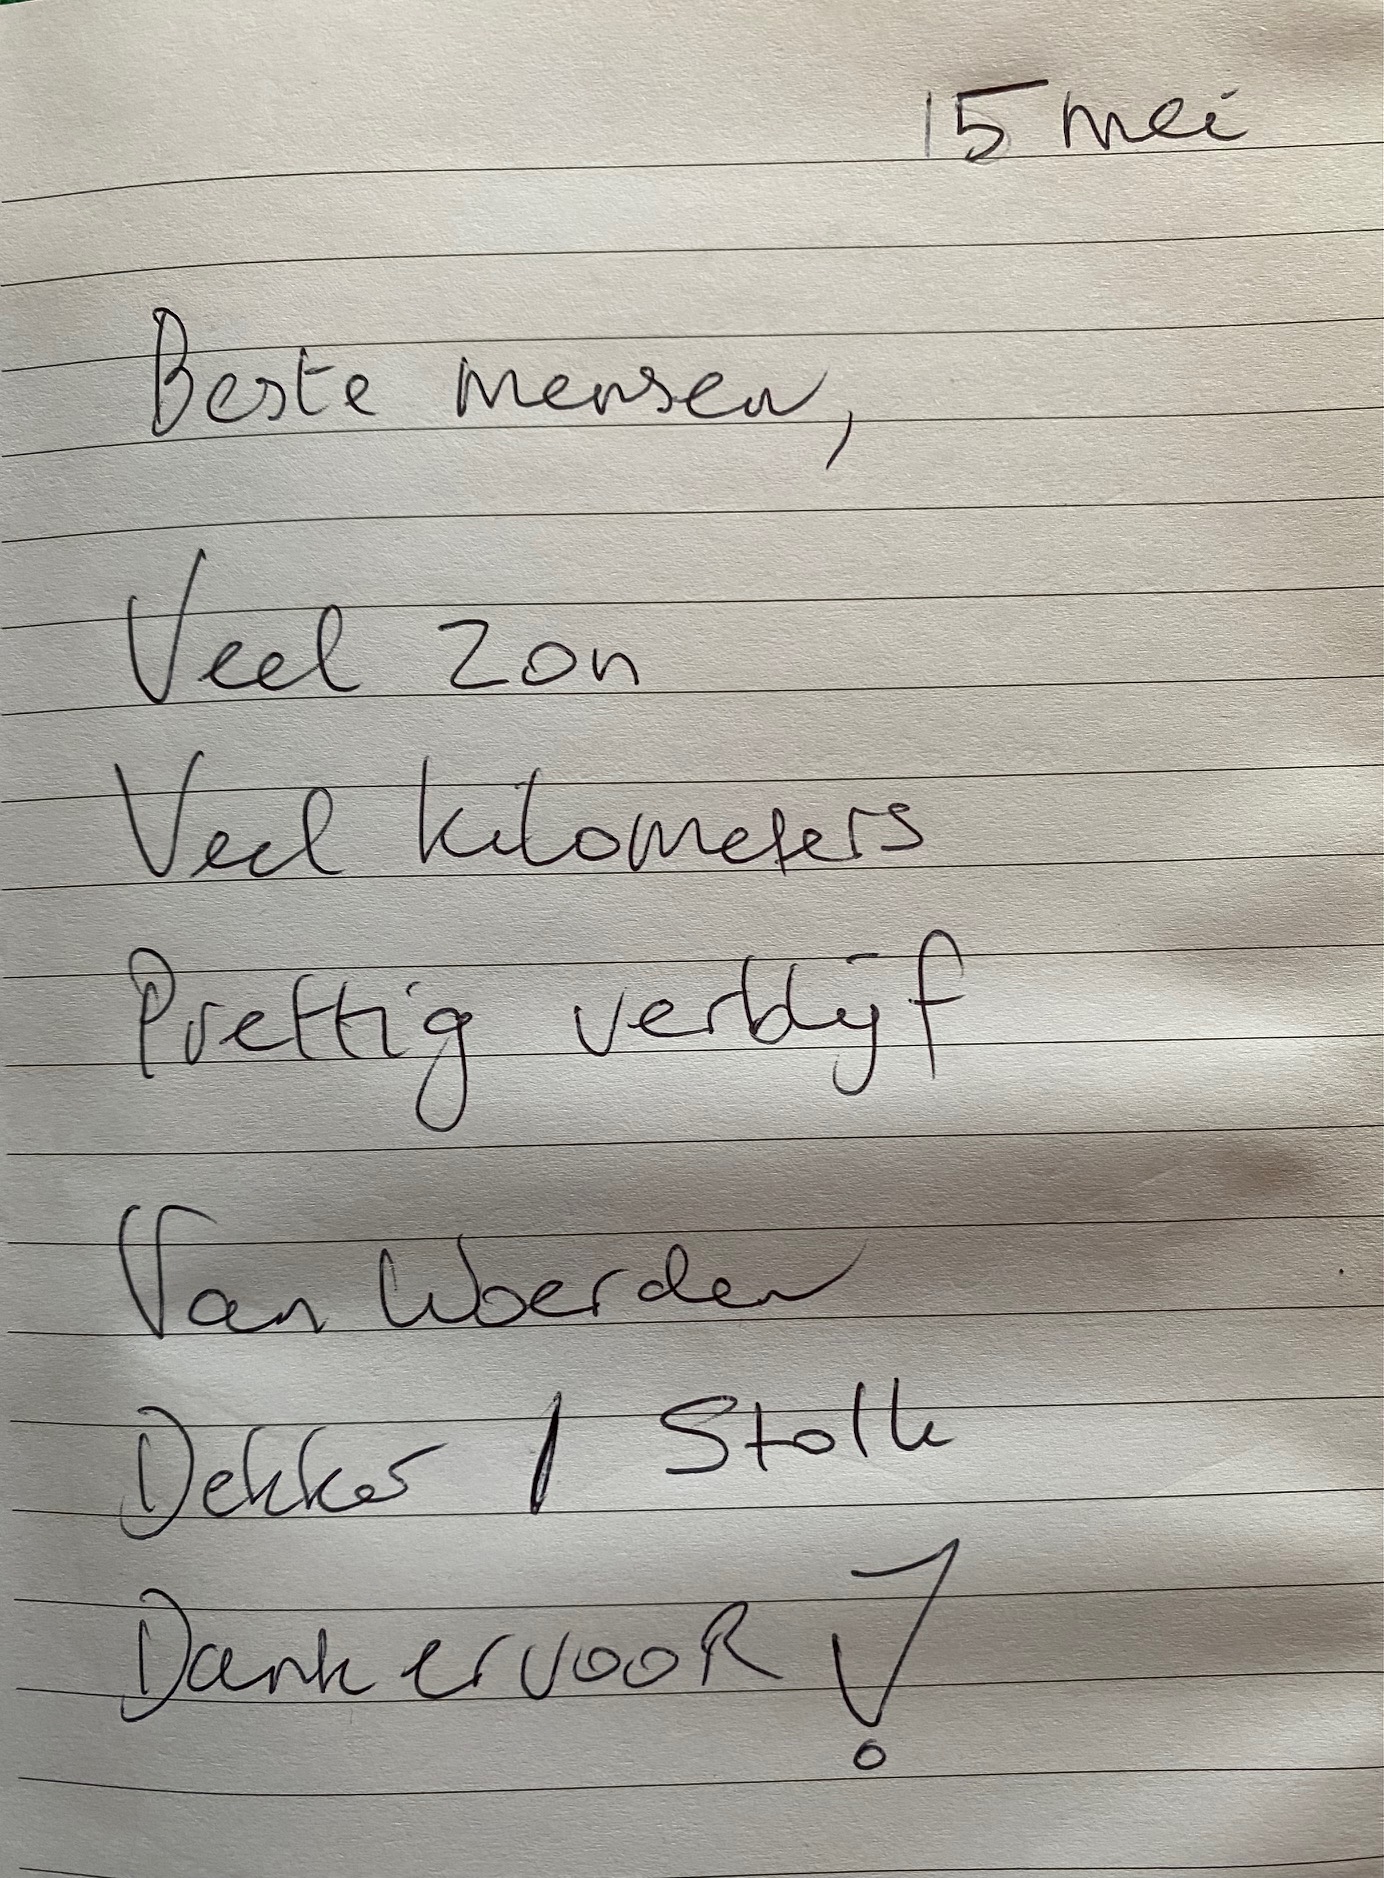 15 mei
Beste mensen,
Veel zon
Veel kilometers
Prettig verblijf
Van Woerden
Dekker / Stolk
Dank ervooR !